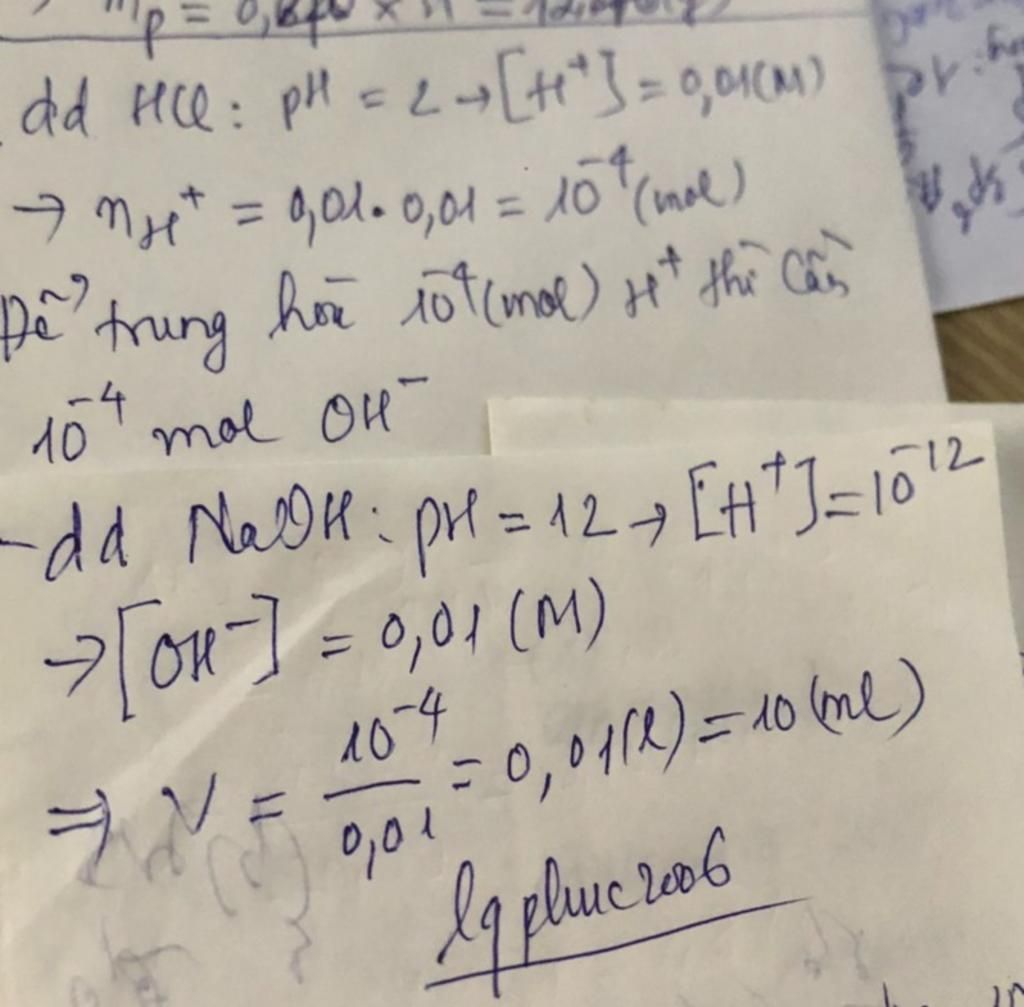 dd HCl: pH = 2 → [H⁺] = 0,01(M)
→ nH⁺ = 0,01 . 0,01 = 10⁻⁴ (mol)
Để trung hoà 10⁻⁴(mol) H⁺ thì cần
10⁻⁴ mol OH⁻
- dd NaOH: pH = 12 → [H⁺] = 10⁻¹²
→ [OH⁻] = 0,01 (M)
⇒ V = 10⁻⁴/0,01 = 0,01(l) = 10 (ml)
lqphuc2006